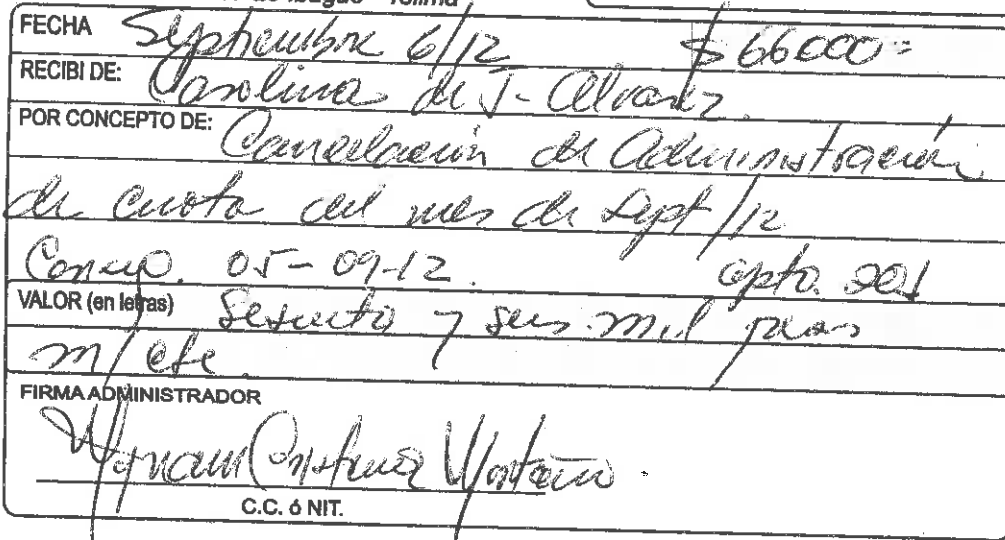 de Ibagué - Tolima
FECHA Septiembre 6/12 $66000=
RECIBI DE: Carolina de J- Alvarez
POR CONCEPTO DE: Cancelación de Administración
de cuota del mes de Sept/12
05-09-12. apto. 201
VALOR (en letras) Sesenta y seis mil pesos
m/cte.
FIRMA ADMINISTRADOR
C.C. ó NIT.